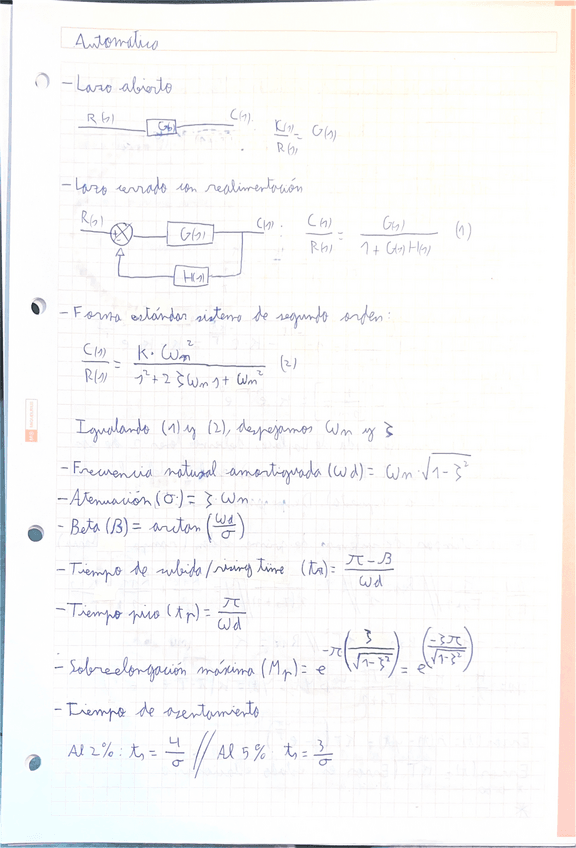 Automático
- Lazo abierto
R(s) G(s) C(s) K(s)/R(s) = G(s)
- Lazo cerrado con realimentación
R(s) + - G(s) C(s) : C(s)/R(s) = G(s)/(1 + G(s)H(s)) (1)
H(s)
- Forma estándar sistema de segundo orden:
C(s)/R(s) = K · ωn²/(s² + 2ζωn s + ωn²) (2)
Igualando (1) y (2), despejamos ωn y ζ
- Frecuencia natural amortiguada (ωd) = ωn · √(1-ζ²)
- Atenuación (σ) = ζ · ωn
- Beta (β) = arctan(ωd/σ)
- Tiempo de subida/rising time (tR) = (π - β)/ωd
- Tiempo pico (tp) = π/ωd
- Sobreelongación máxima (Mp) = e^(-π(ζ/√(1-ζ²))) = e^(-ζπ/√(1-ζ²))
- Tiempo de asentamiento
Al 2%: ts = 4/σ // Al 5% ts = 3/σ